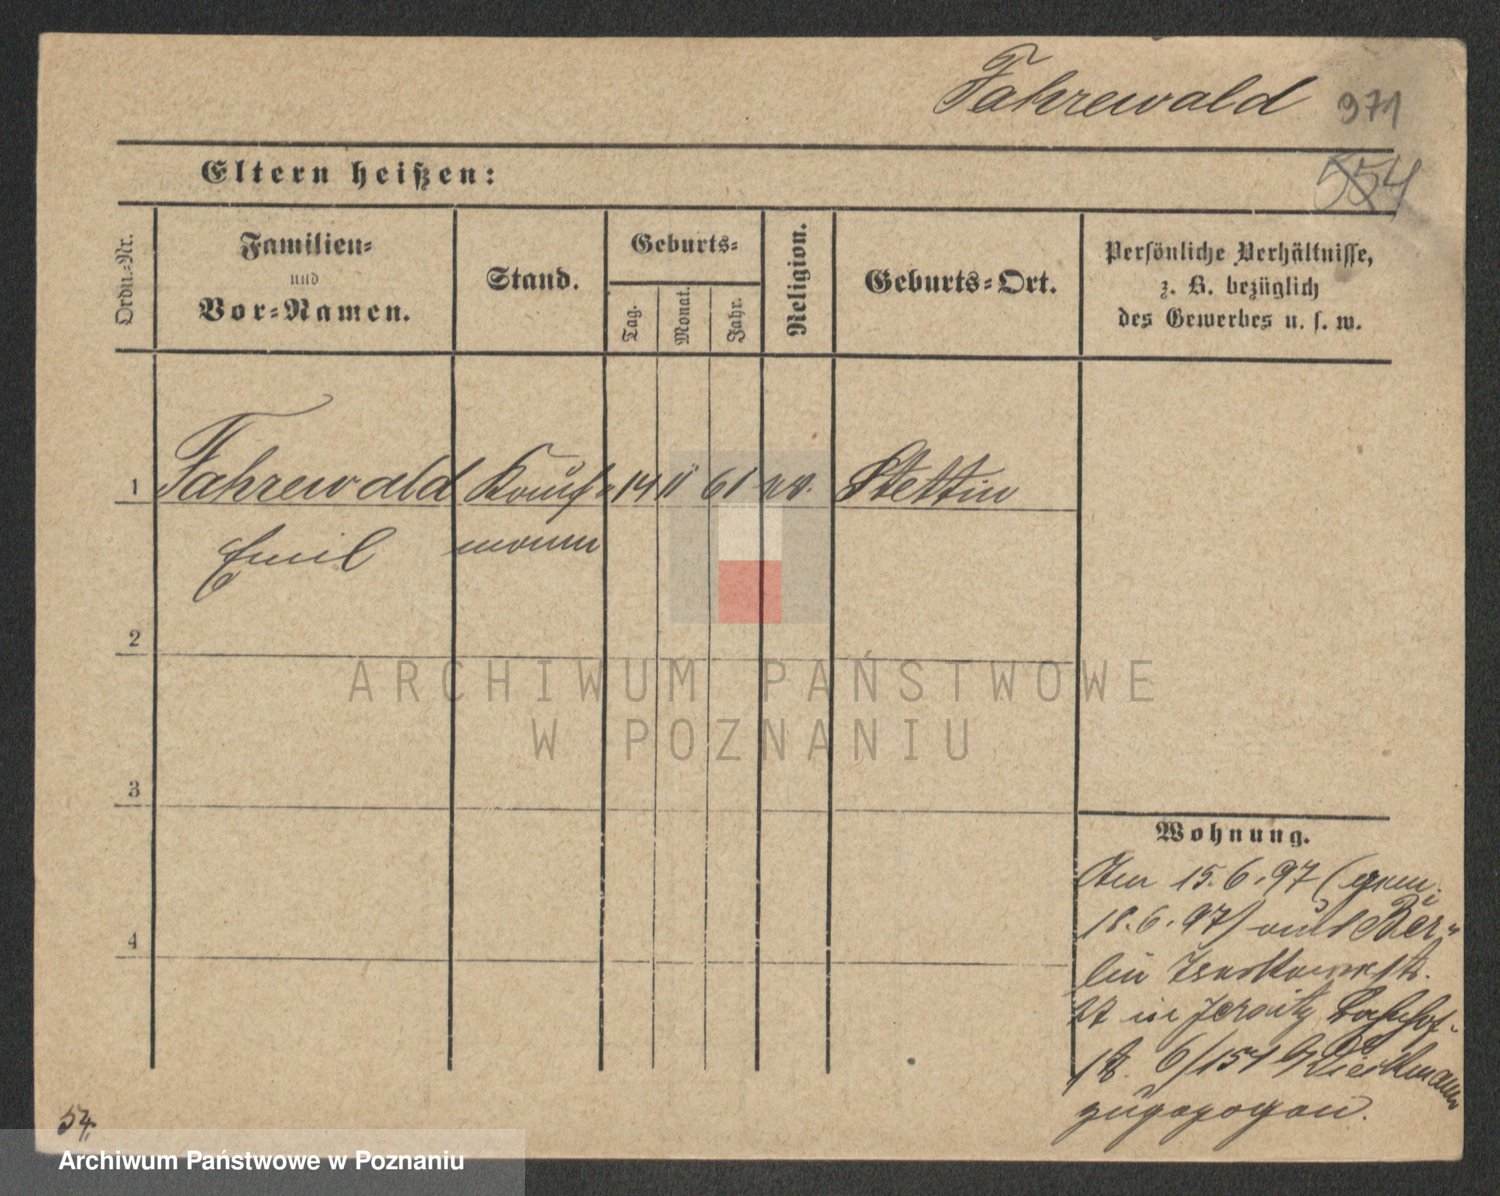 Fahrewald 971
554
Eltern heißen:
Ordn.-Nr.
Familien-
und
Vor-Namen.
Stand.
Geburts-
Tag.
Monat.
Jahr.
Religion.
Geburts-Ort.
Persönliche Verhältnisse,
z. B. bezüglich
des Gewerbes u. s. w.
1 Fahrewald Kauf- 14 11 61 ev. Stettin
Emil mann
2
ARCHIWUM PAŃSTWOWE
W POZNANIU
3
4
Wohnung.
Am 15.6.97 (gem.
18.6.97) aus Ber-
lin
27 in Jersitz Bahnhof-
str. 6/151
zugezogen.
54.
Archiwum Państwowe w Poznaniu